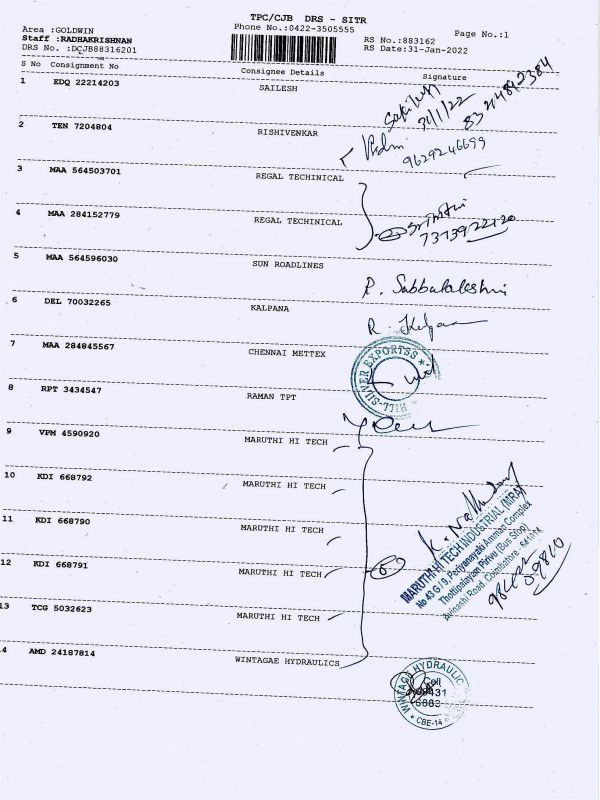 TPC/CJB DRS - SITR
Area :GOLDWIN
Phone No.:0422-3505555
Page No.:1
Staff :RADHAKRISHNAN
RS No.:883162
DRS No. :DCJB88316201
RS Date:31-Jan-2022
S No Consignment No Consignee Details Signature
1 EDQ 22214203 SAILESH
31/1/22
2 TEN 7204804 RISHIVENKAR
9629246699
3 MAA 564503701 REGAL TECHINICAL
4 MAA 284152779 REGAL TECHINICAL
5 MAA 564596030 SUN ROADLINES
6 DEL 70032265 KALPANA
R.
7 MAA 284845567 CHENNAI METTEX
HILL-SILVER EXPORTSS
8 RPT 3434547 RAMAN TPT
9 VPM 4590920 MARUTHI HI TECH
10 KDI 668792 MARUTHI HI TECH
11 KDI 668790 MARUTHI HI TECH
12 KDI 668791 MARUTHI HI TECH
MARUTHI HI TECH INDUSTRIAL (MRA)
No 43 G / 9, Periyanayaki Amman Complex
Thottipalayam Pirivu (Bus Stop)
Avinashi Road, Coimbatore - 641014
13 TCG 5032623 MARUTHI HI TECH
14 AMD 24187814 WINTAGAE HYDRAULICS
WINTAGE HYDRAULIC
Cell
CBE-14